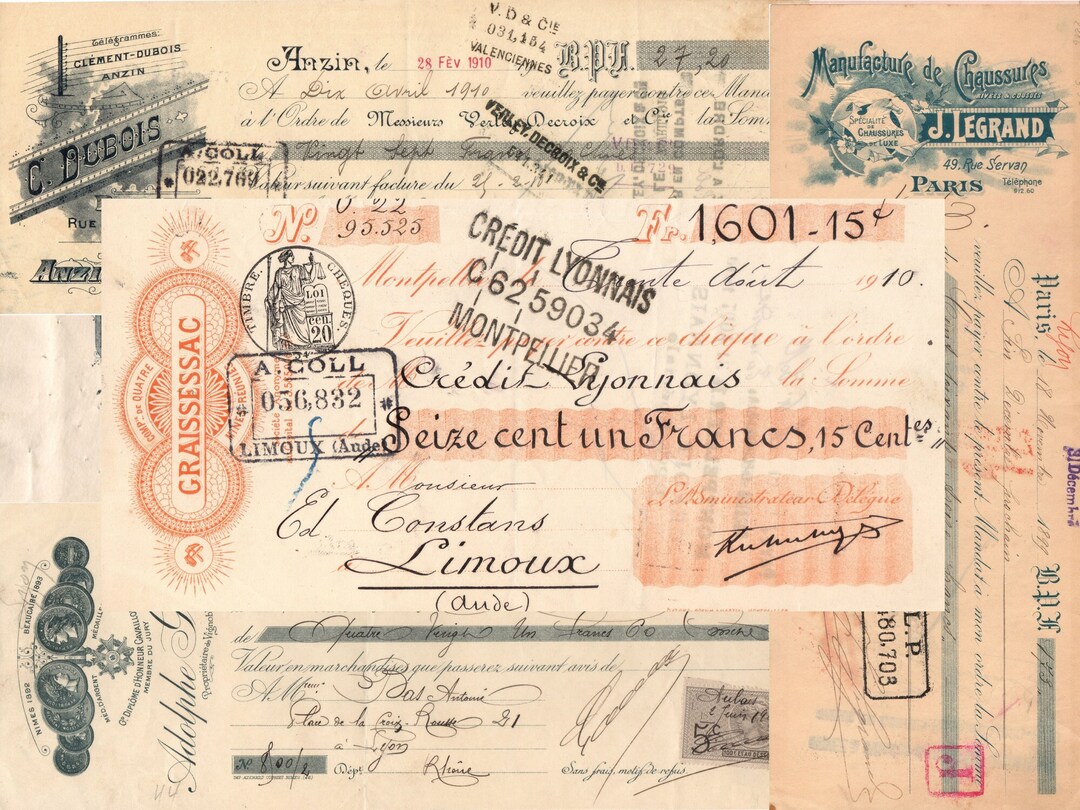 Télégrammes:
CLÉMENT-DUBOIS
ANZIN
C. DUBOIS
RUE
ANZIN
Anzin, le 28 FÉV 1910 B.P.F. 27,20
V. D & CIE
031,154
VALENCIENNES
A Dix Avril 1910 veuillez payer contre ce Mand
à l'Ordre de Messieurs Verley Decroix et Cie la Som
VERLEY, DECROIX & Cie
Vingt Sept
Valeur suivant facture du
A. COLL
022,769
Manufacture de Chaussures
RIVÉES & COUSUES
SPÉCIALITÉ
DE
CHAUSSURES
DE LUXE
J. LEGRAND
49. Rue Servan
PARIS
Téléphone
912.60
No. 0.22
95.525
Fr. 1,601-15c
TIMBRE. CHÈQUES.
LOI
20
Montpellier, le Trente Août 1910.
CRÉDIT LYONNAIS
C6259034
MONTPELLIER
Veuillez payer contre ce chèque à l'ordre
du Crédit Lyonnais la Somme
de Seize cent un Francs, 15 Centes "
A Monsieur
Ed Constans
Limoux
(Aude)
L'Administrateur Délégué
COMPIE DE QUATRE MINES REUNIES
GRAISSESSAC
A. COLL
056,832
LIMOUX (Aude)
Paris, le 18 Novembre
B.P.F.
A Fin Décembre prochain
veuillez payer contre le présent Mandat à mon ordre la Somme
31 Décembre
L.P.
80.703
NIMES 1892
BEAUCAIRE 1893
MÉDAILLE
MEC D'ARGENT
Gp. DIPLÔME D'HONNEUR CAVAILLO
MEMBRE DU JURY
Adolphe G
Propriétaire de Vignobl
de Quatre Vingt Un Francs 60
Valeur en marchandises que passerez suivant avis de
A Mme Bas Antoine
Place de la Croix-Rousse 21
à Lyon
No 800/2 Dépt Rhône
Sans frais, motif de refus.